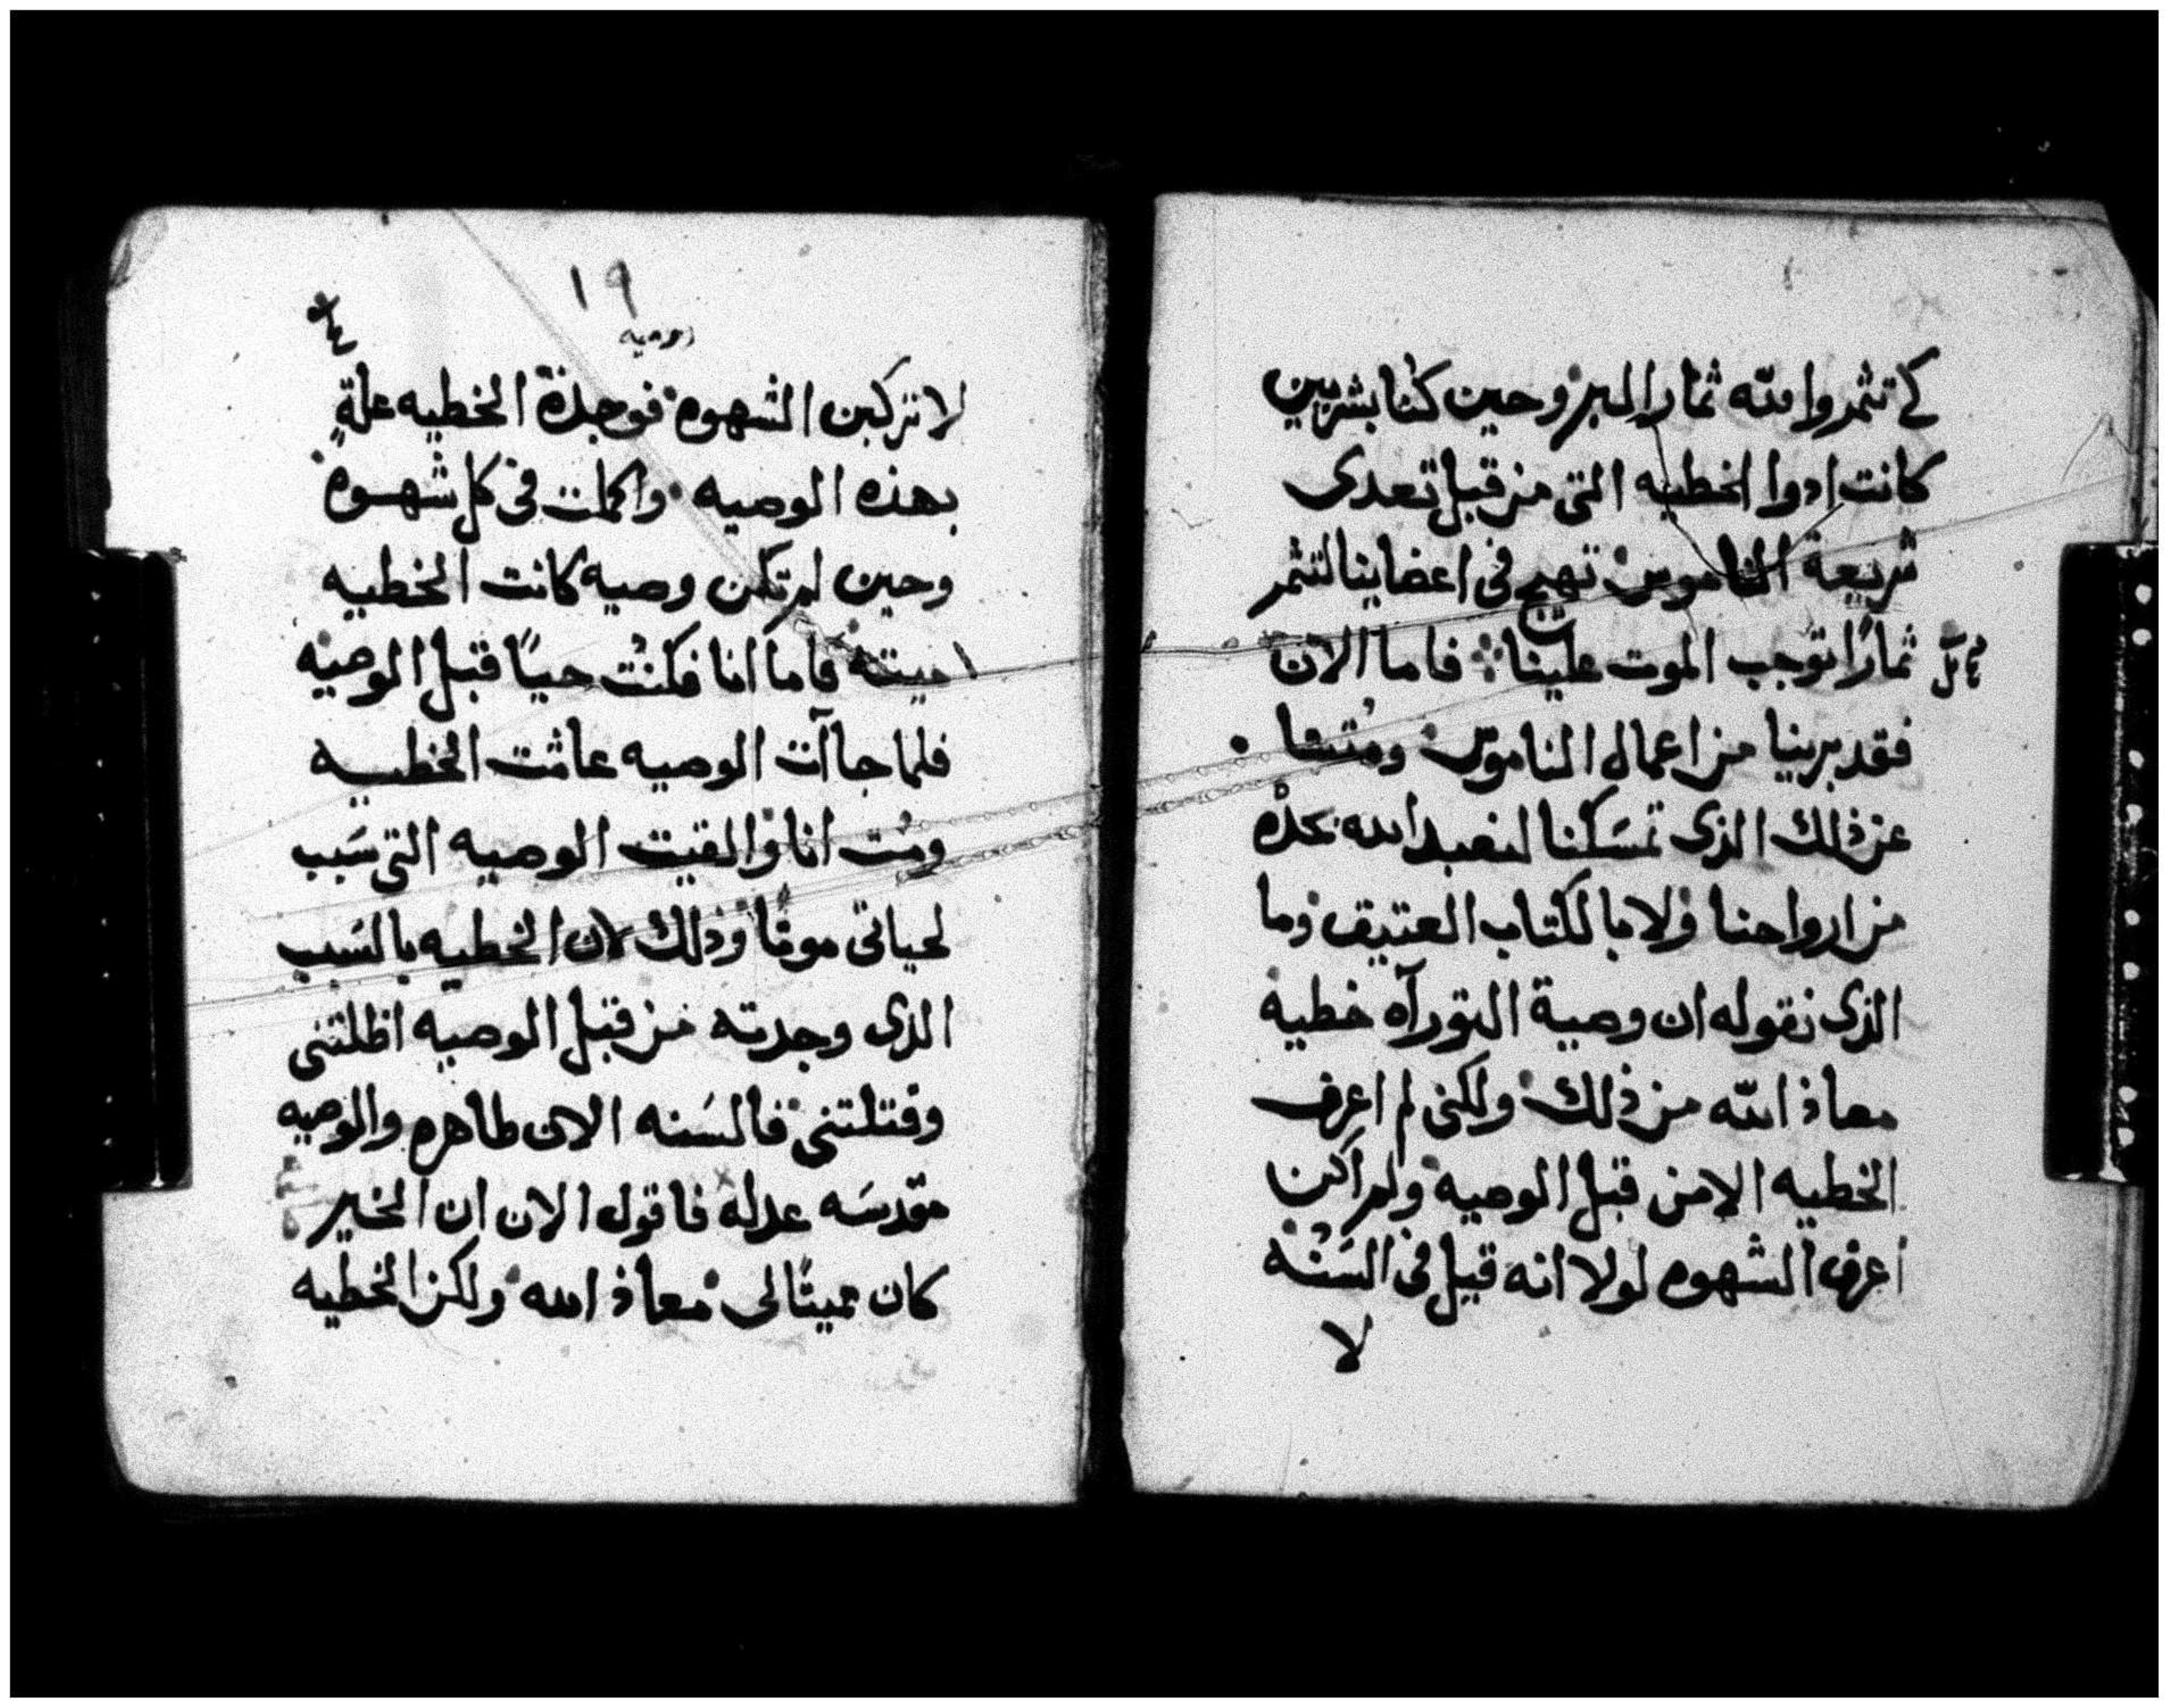 كي تثمروا لله ثمار البر وحين كنا بشريين
كانت ادوا الخطيه التى من قبل تعدى
شريعة الناموس تهيج فى اعضاينا لنثمر
ثمارًا توجب الموت علينا فاما الان
فقد برينا من اعمال الناموس ومتنا
عن ذلك الذى تمسكنا لنعبد الله بجده
من ارواحنا ولا بالكتاب العتيق وما
الذى نقوله ان وصية التورآه خطيه
معاذ الله من ذلك ولكنى لم اعرف
الخطيه الا من قبل الوصيه ولم اكن
اعرف الشهوه لولا انه قيل فى السنه
لا
١٩
روميه
لا تركبن الشهوه فوجدة الخطيه علةٍ
بهذه الوصيه واكملت فى كل شهوه
وحين لم تكن وصيه كانت الخطيه
ميته فاما انا فكنت حيًا قبل الوصيه
فلما جاآت الوصيه عاشت الخطيه
ومت انا والفيت الوصيه التى سبب
لحياتى موتًا وذلك لان الخطيه بالسبب
الذى وجدته من قبل الوصيه اظلتنى
وقتلتنى فالسنه الان طاهره والوصيه
مقدسه عدله فاقول الان ان الخير
كان مميتًا لى معاذ الله ولكن الخطيه